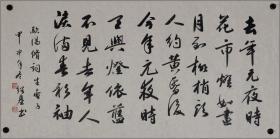 去年元夜時
花市燈如晝
月到柳梢頭
人約黃昏後
今年元夜時
月與燈依舊
不見去年人
淚滿春衫袖
歐陽修詞生查子
甲申年冬書